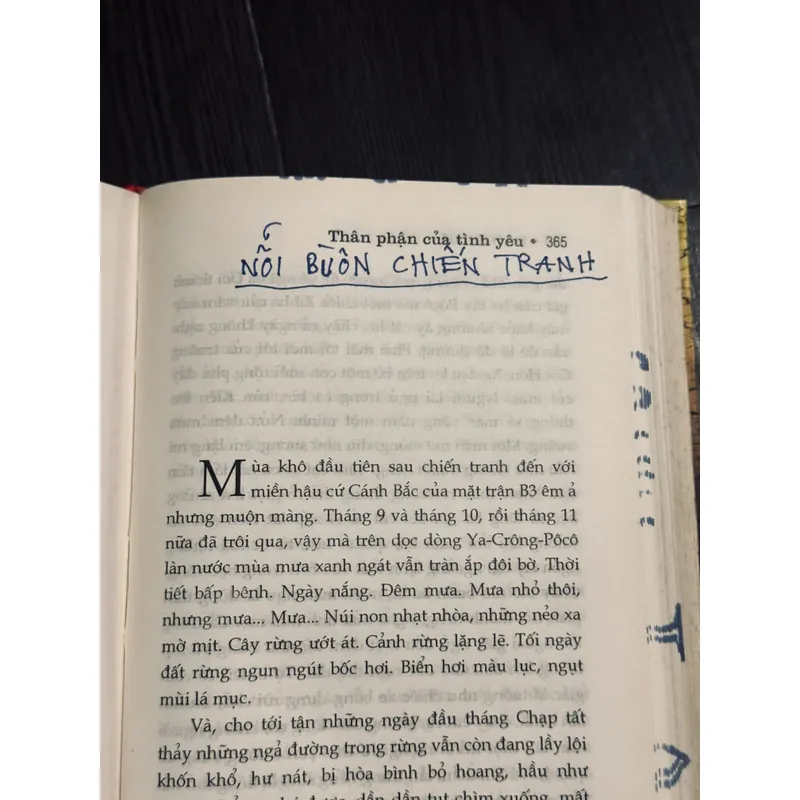 Thân phận của tình yêu • 365
NỖI BUỒN CHIẾN TRANH
Mùa khô đầu tiên sau chiến tranh đến với
miền hậu cứ Cánh Bắc của mặt trận B3 êm ả
nhưng muộn màng. Tháng 9 và tháng 10, rồi tháng 11
nữa đã trôi qua, vậy mà trên dọc dòng Ya-Crông-Pôcô
làn nước mùa mưa xanh ngát vẫn tràn ắp đôi bờ. Thời
tiết bấp bênh. Ngày nắng. Đêm mưa. Mưa nhỏ thôi,
nhưng mưa... Mưa... Núi non nhạt nhòa, những nẻo xa
mờ mịt. Cây rừng ướt át. Cảnh rừng lặng lẽ. Tối ngày
đất rừng ngun ngút bốc hơi. Biển hơi màu lục, ngụt
mùi lá mục.
Và, cho tới tận những ngày đầu tháng Chạp tất
thảy những ngả đường trong rừng vẫn còn đang lầy lội
khốn khổ, hư nát, bị hòa bình bỏ hoang, hầu như
được, dần dần tụt chìm xuống, mất